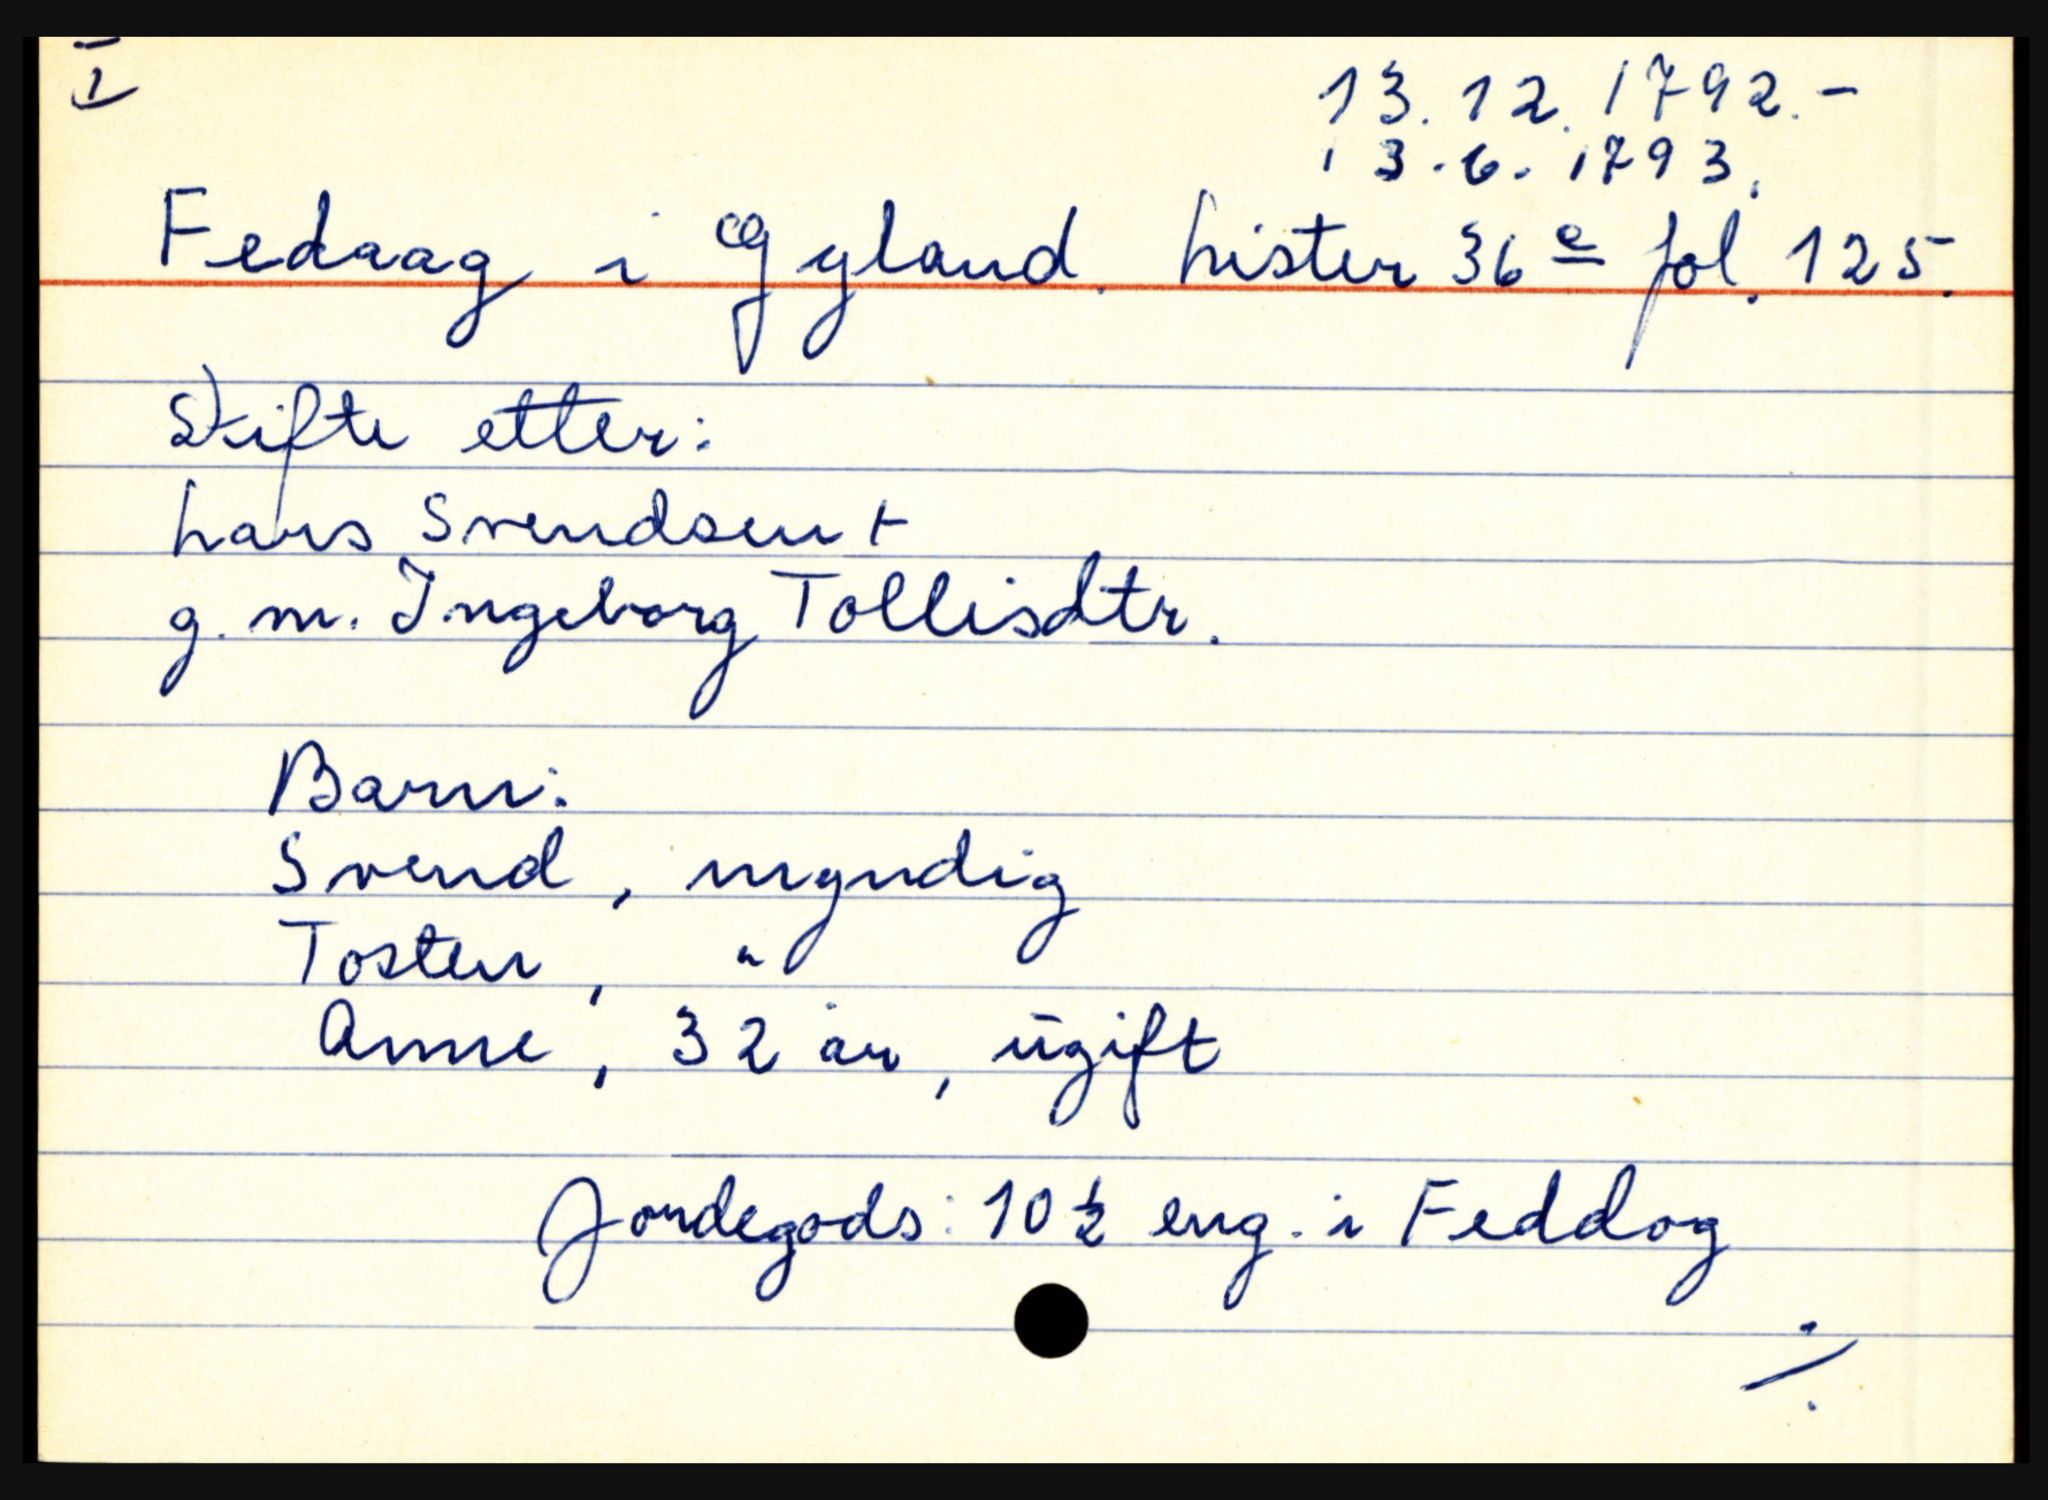 I
13.12.1792.-
13.6.1793.
Fedaag i Gyland. Lister 36 e fol. 125.
Skifte etter:
Lars Svendsen +
g. m. Ingeborg Tollisdtr.
Barn:
Svend, myndig
Tosten, "
Anne, 32 år, ugift
Jordegods: 10 ½ eng. i Feddog
./.